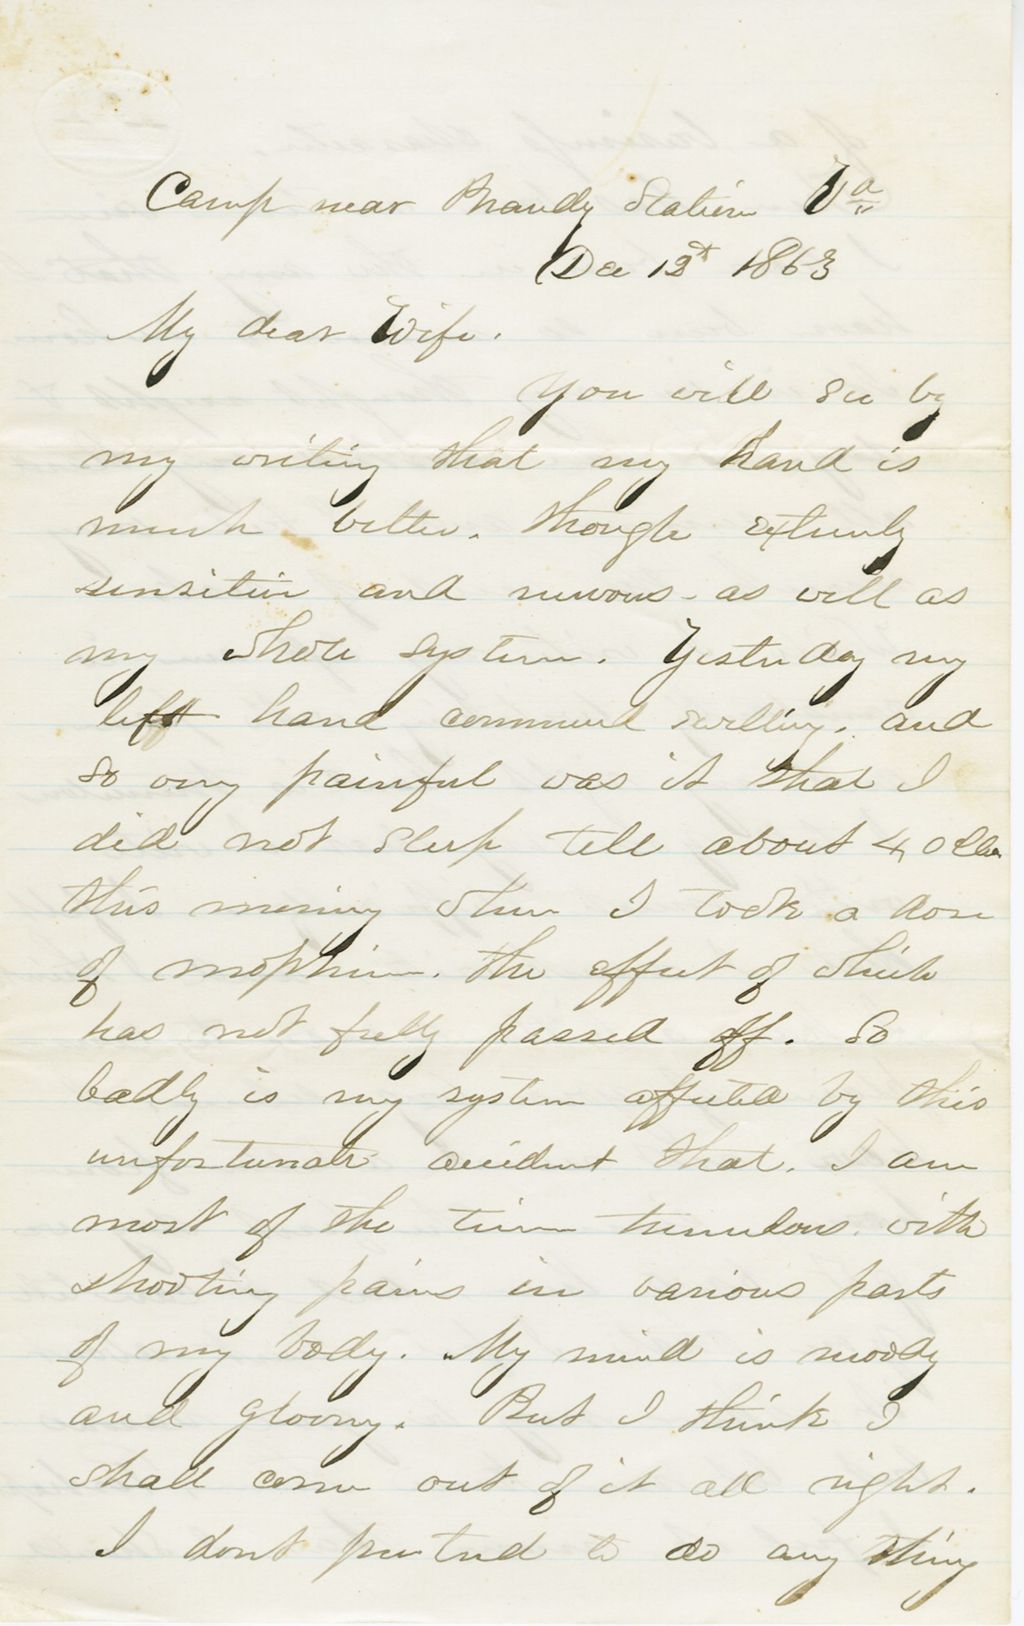 Camp near Brandy Station Va
Dec 12th 1863
My dear Wife.
You will see by
my writing that my hand is
much better. though extremely
sensitive and nervous - as well as
my whole system. Yesterday my
left hand commenced swelling. and
so very painful was it that I
did not sleep till about 4 oClk
this morning when I took a dose
of mophine. the effect of which
has not fully passed off. So
badly is my system affected by this
unfortunate accident that. I am
most of the time tremulous. with
shooting pains in various parts
of my body. My mind is moody
and gloomy. But I think I
shall come out of it all right.
I dont pretend to do any thing